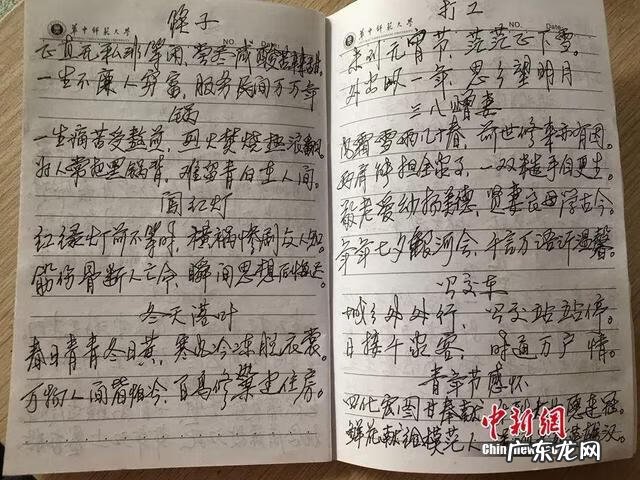 华中师范大学
NO.
筷子
正直无私非等闲,尝尽咸酸苦辣甜。
一生不嫌人穷富,服务民间万万年
锅
一生痛苦受熬煎,烈火焚烧热浪翻。
为人常把黑锅背,难留青白在人间。
闯红灯
红绿灯前不等时,横祸惨剧
筋伤骨断人亡命,瞬间思想后悔
冬天落叶
春日青青冬日黄,寒风冷冻脱衣裳。
万物人间着怕冷,百鸟修巢建住房。
华中师范大学
NO.
Date
打工
未到元宵节,茫茫正下雪。
外出一年,思乡望明月
三八赠妻
霜雪雨几十春,前世修来亦有因。
两肩挑担全家子,一双糙手自更生
敬老爱幼扬美德,贤妻良母学古今。
年年七夕银河会,千言万语诉温馨。
公交车
城乡外外行,公交站站停。
日接千家客,时通万户情。
青年节感怀
四化宏图甘奉献
鲜花献给模范人
中新网
chinanews
广东龙网